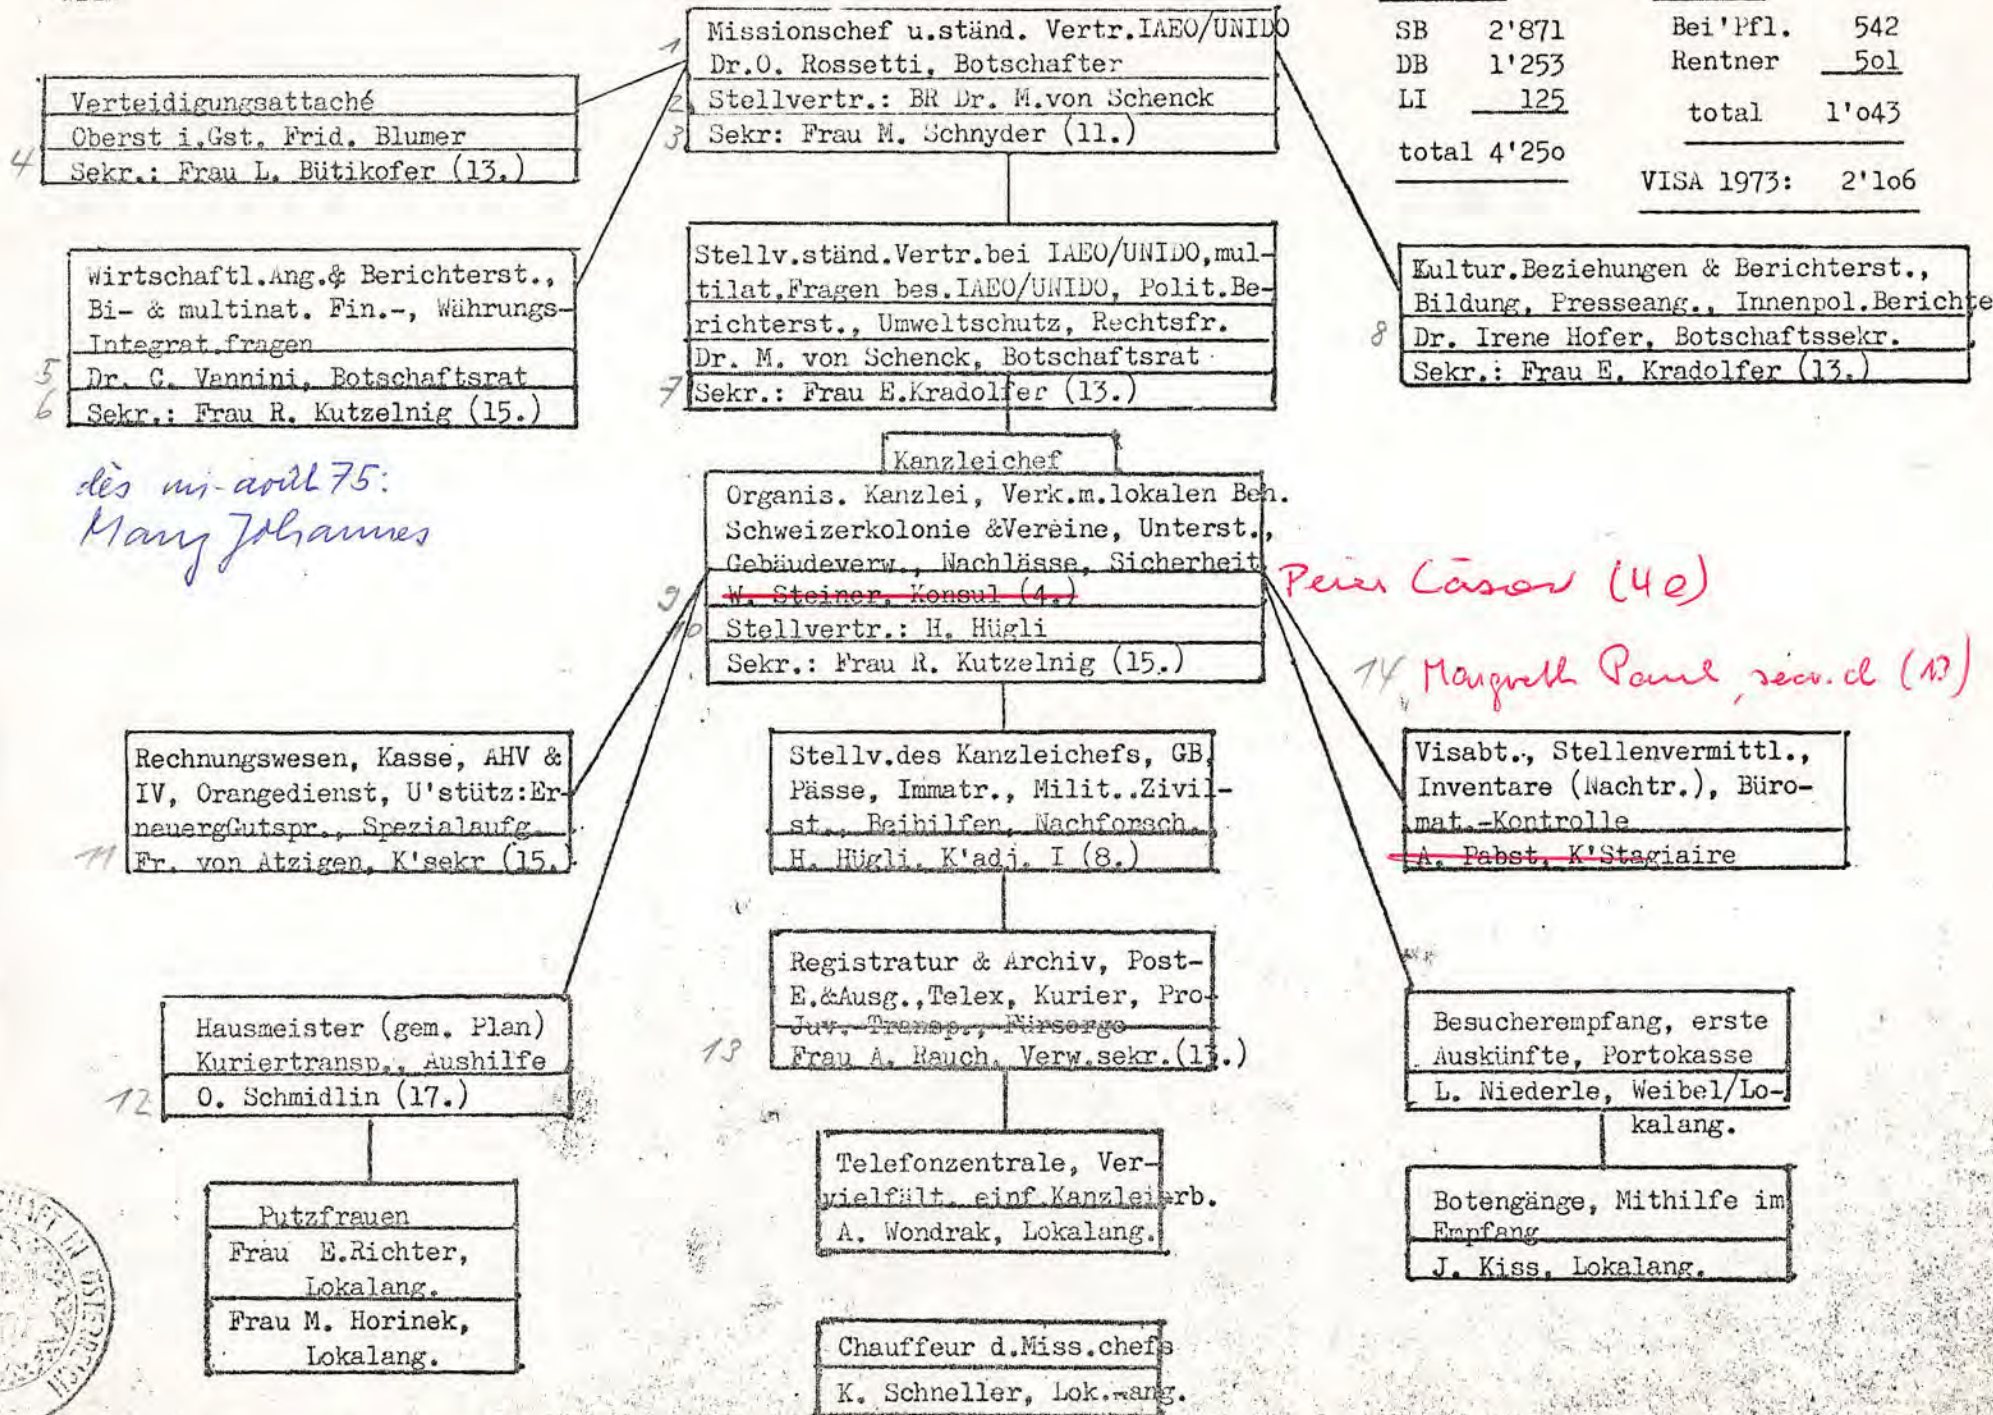 Missionschef u.ständ. Vertr.IAEO/UNIDO
1
Dr.O. Rossetti, Botschafter
2 Stellvertr.: BR Dr. M.von Schenck
3 Sekr: Frau M. Schnyder (11.)
SB 2'871
DB 1'253
LI 125
total 4'25o
Bei'Pfl. 542
Rentner 5o1
total 1'o43
VISA 1973: 2'1o6
Verteidigungsattaché
Oberst i.Gst. Frid. Blumer
4 Sekr.: Frau L. Bütikofer (13.)
Wirtschaftl.Ang.& Berichterst.,
Bi- & multinat. Fin.-, Währungs-
Integrat.fragen
5 Dr. C. Vannini, Botschaftsrat
6 Sekr.: Frau R. Kutzelnig (15.)
Stellv.ständ.Vertr.bei IAEO/UNIDO,mul-
tilat.Fragen bes.IAEO/UNIDO, Polit.Be-
richterst., Umweltschutz, Rechtsfr.
Dr. M. von Schenck, Botschaftsrat
7 Sekr.: Frau E.Kradolfer (13.)
Kultur.Beziehungen & Berichterst.,
Bildung, Presseang., Innenpol.Berichte
8 Dr. Irene Hofer, Botschaftssekr.
Sekr.: Frau E. Kradolfer (13.)
dès mi-août 75:
Johannes
Kanzleichef
Organis. Kanzlei, Verk.m.lokalen Beh.
Schweizerkolonie &Vereine, Unterst.,
Gebäudeverw., Nachlässe, Sicherheit
9 W. Steiner, Konsul (4.)
10 Stellvertr.: H. Hügli
Sekr.: Frau R. Kutzelnig (15.)
Cäsar (4e)
14 Margreth Paul, (13)
Rechnungswesen, Kasse, AHV &
IV, Orangedienst, U'stütz:Er-
neuergGutspr., Spezialaufg.
11 Fr. von Atzigen, K'sekr (15.)
Stellv.des Kanzleichefs, GB,
Pässe, Immatr., Milit..Zivil-
st., Beihilfen, Nachforsch.
H. Hügli, K'adj. I (8.)
Visabt., Stellenvermittl.,
Inventare (Nachtr.), Büro-
mat.-Kontrolle
A. Pabst, K'Stagiaire
Registratur & Archiv, Post-
E.&Ausg.,Telex, Kurier, Pro-
Juv. Transp., Fürsorge
13 Frau A. Rauch, Verw.sekr.(13.)
Hausmeister (gem. Plan)
Kuriertransp., Aushilfe
12 O. Schmidlin (17.)
Besucherempfang, erste
Auskünfte, Portokasse
L. Niederle, Weibel/Lo-
kalang.
Telefonzentrale, Ver-
vielfält. einf.Kanzleiarb.
A. Wondrak, Lokalang.
Putzfrauen
Frau E.Richter,
Lokalang.
Frau M. Horinek,
Lokalang.
Botengänge, Mithilfe im
Empfang
J. Kiss, Lokalang.
Chauffeur d.Miss.chefs
K. Schneller, Lok.ang.
IN ÖSTERREICH